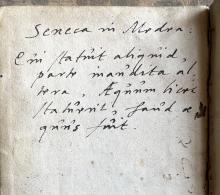 Seneca in Medea.
Qui statuit aliquid,
parte inaudita al
tera, Aequum licet
statuerit, haud ae
quus fuit.